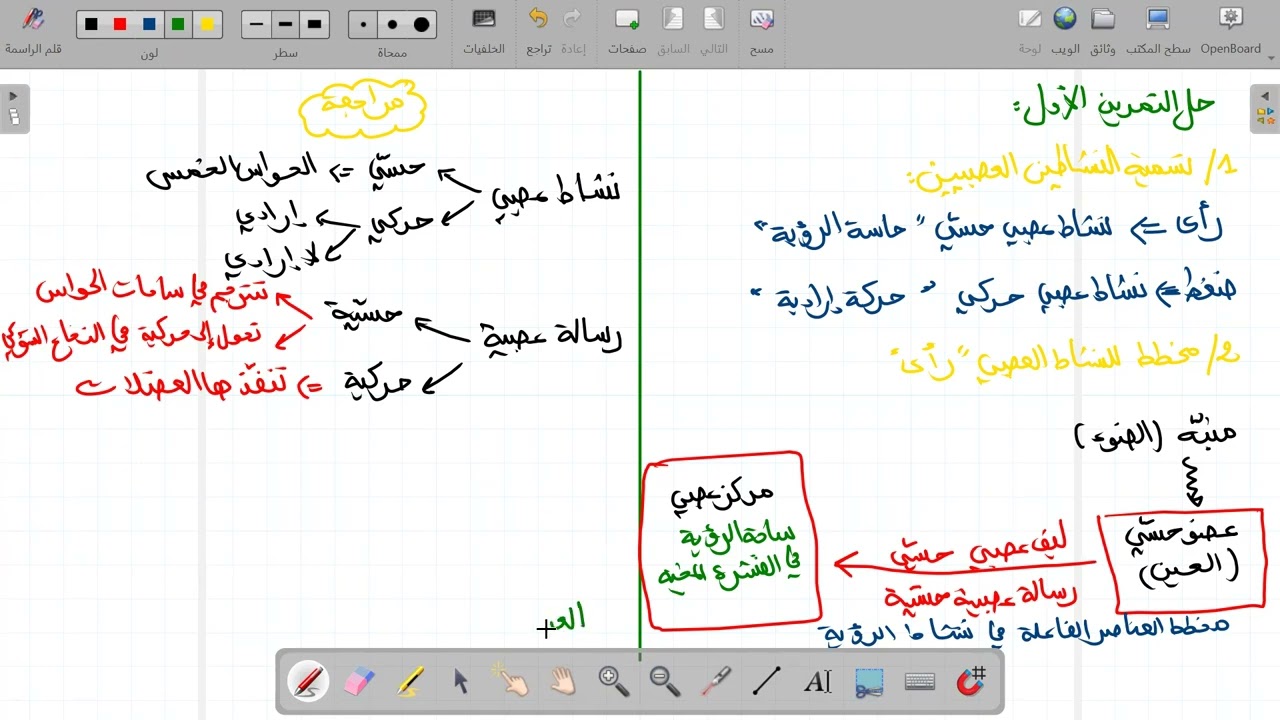 قلم الراسمة
لون
سطر
ممحاة
الخلفيات
تراجع
إعادة
صفحات
السابق
التالي
مسح
لوحة
الويب
وثائق
سطح المكتب
OpenBoard
حل التمرين الأول:
1/ تسمية النشاطين العصبيين:
رأى => نشاط عصبي حسّي "حاسة الرؤية"
ضغط => نشاط عصبي حركي "حركة إرادية"
2/ مخطط للنشاط العصبي "رأى"
منبّه (الضوء)
عضو حسّي
(العين)
ليف عصبي حسّي
رسالة عصبية حسّية
مركز عصبي
ساحة الرؤية
في القشرة المخية
مخطط العناصر الفاعلة في نشاط الرؤية
مراجعة
نشاط عصبي
حسّي => الحواس الخمس
حركي
إرادي
لا إرادي
رسالة عصبية
حسّية
تترجم في ساحات الحواس
تحول إلى حركية في النخاع الشوكي
حركية => تنفّذها العضلات
العـ